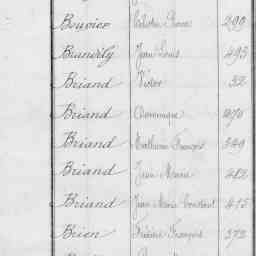 Bouvier Pierre 290
Brandily Jean Louis 493
Briand Victor 32
Briand Dominique 1070
Briand Mathurin François 349
Briand Jean Marie 482
Briand Jean Marie Constant 415
Brien François 372